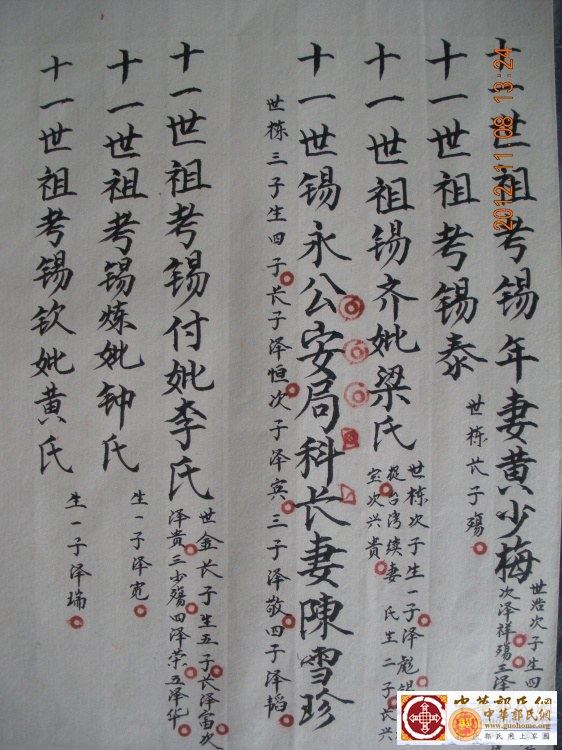 十一世祖考锡年妻黄少梅
世浩次子生四
次泽祥殇三泽
十一世祖考锡泰
世栋长子殇
十一世祖锡齐妣梁氏
世栋次子生一子泽彪
捉台湾续妻 氏生二子长兴
宝次兴贵
十一世锡永公安局科长妻陳雪珍
世栋三子生四子长子泽恒次子泽宾三子泽敬四子泽韬
十一世祖考锡付妣李氏
世金长子生五子长泽富次
泽贵三少殇四泽荣五泽华
十一世祖考锡炼妣钟氏
生一子泽宽
十一世祖考锡钦妣黄氏
生一子泽瑞
2012.11.08 13:24
中華郭氏網
中華郭氏網
www.guohome.org
郭氏網上家園